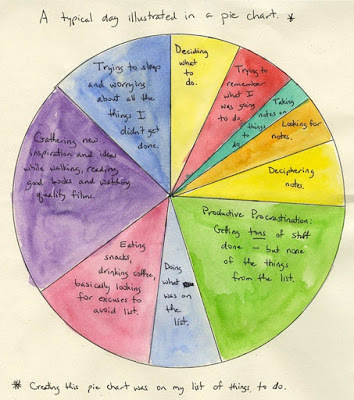 A typical day illustrated in a pie chart. *
Deciding
what
to
do.
Trying to
remember
what I
was going
to do.
Taking
notes on
things
to
do
Looking for
notes.
Deciphering
notes.
Productive Procrastination:
Getting tons of stuff
done – but none
of the things
from the list.
Doing
what
was on
the
list.
Eating
snacks,
drinking coffee,
basically looking
for excuses to
avoid list.
Gathering new
inspiration and ideas
while walking, reading
good books and watching
quality films.
Trying to sleep
and worrying
about all the
things I
didn't get
done.
* Creating this pie chart was on my list of things to do.